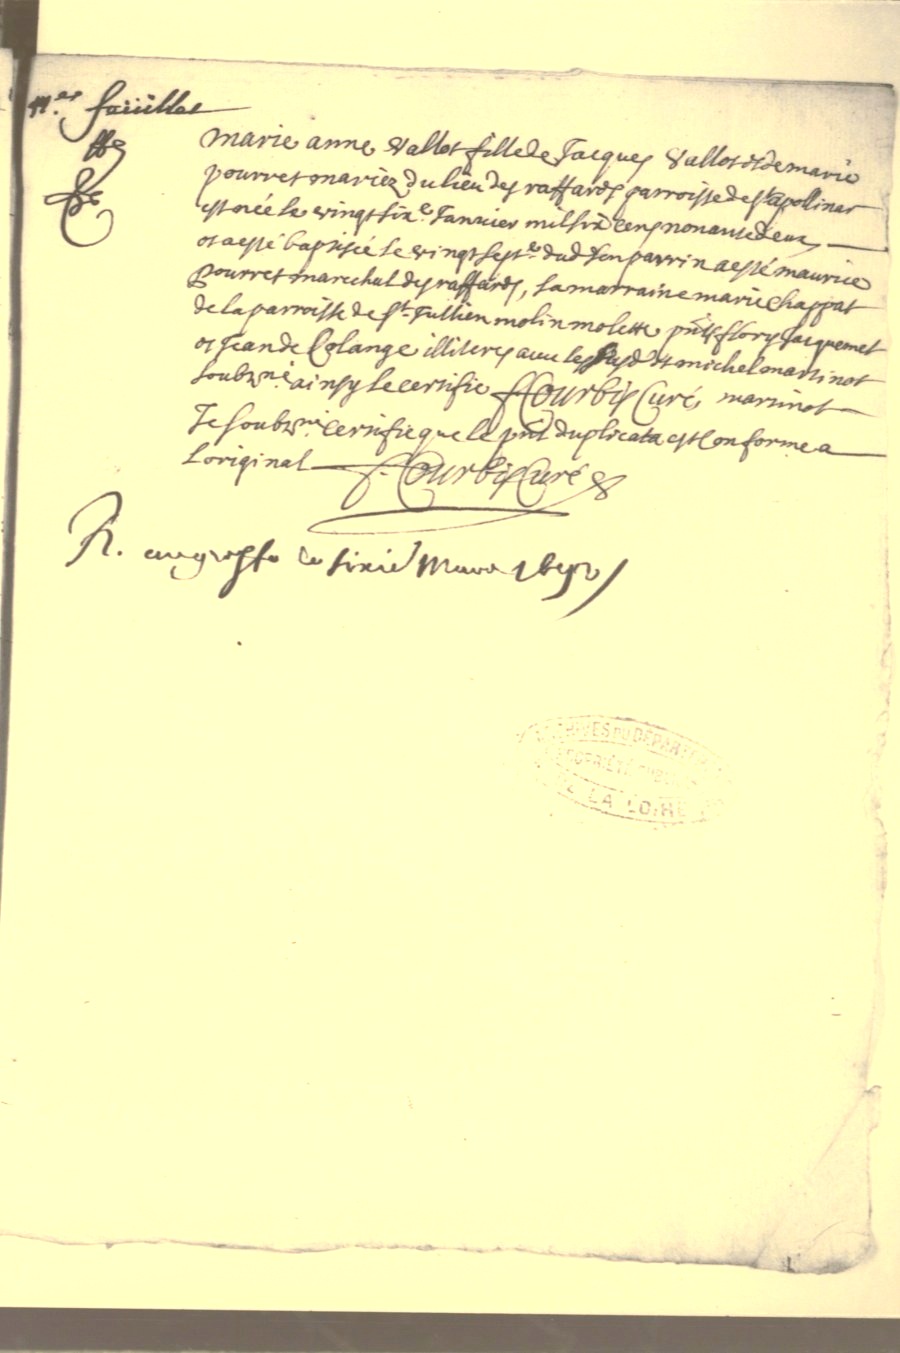 11.er feüillet
marie anne Vallot fille de Jacques Vallot et de marie
pourret mariez du lieu des raffards parroisse de st apollinar
est née le vingt six.e Janvier mil six cens nonante deux
et a esté baptisée le vingt sept.e dud son parrin a esté maurice
pourret marechal des raffards, sa marraine marie Chappat
de la parroisse de st Jullien molin molette pnts flory Jacquemet
et Jean de Colange illiteres avec les et michel martinot
soubz.né ainsy le certifie Courbis Curé martinot
Je soubz.né certifie que le pnt duplicata est Conforme a
Loriginal Courbis Curé
R. au greffe le sixie
ARCHIVES DU DÉPARTEMENT
PROPRIÉTÉ PUBLIQUE
DE LA LOIRE